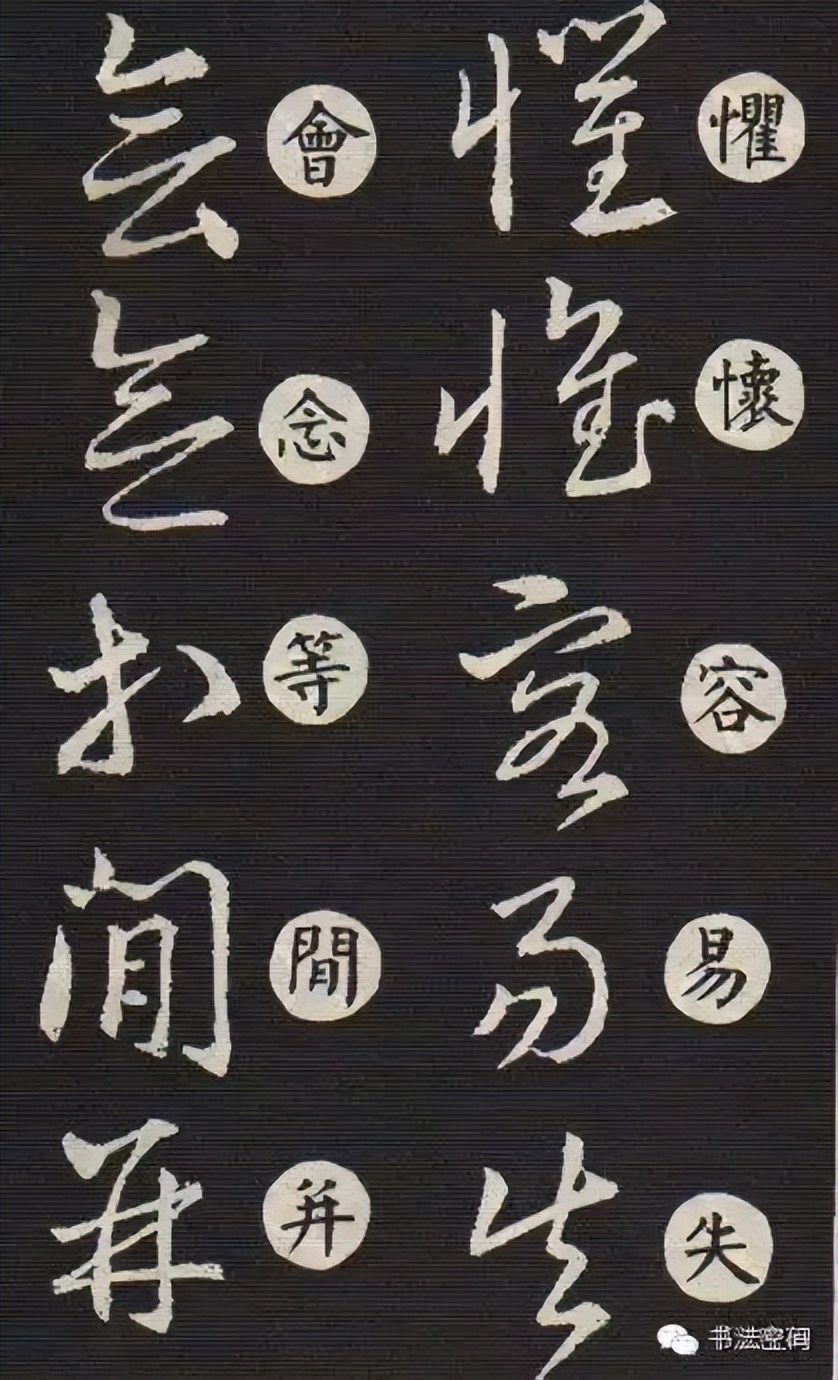 懼懷容易失
會念等間并
书法密码